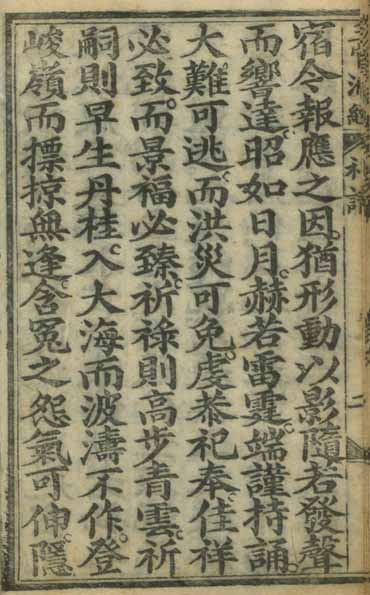 宿今報應之因。猶形動以影隨若發聲
而響達。昭如日月。赫若雷霆。端謹持誦。
大難可逃。而洪災可免。虔恭祀奉。佳祥
必致。而景福必臻。祈祿則高步青雲。祈
嗣則早生丹桂。入大海而波濤不作。登
峻嶺而摽掠無逢。含冤之怨氣可伸。隱